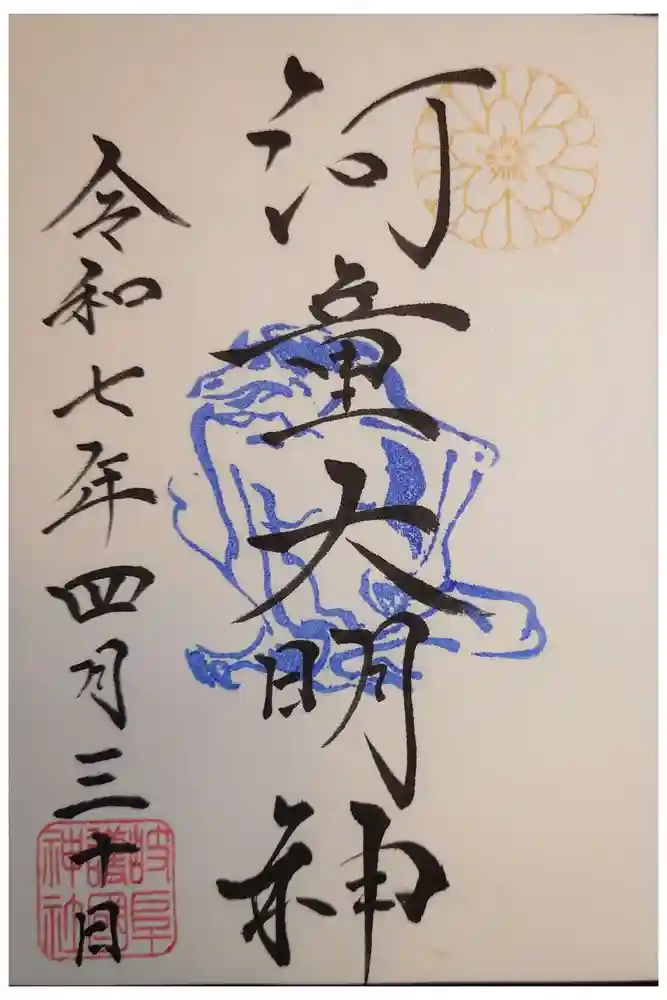 河童大明神
令和七年四月三十日
岐阜
護國
神社